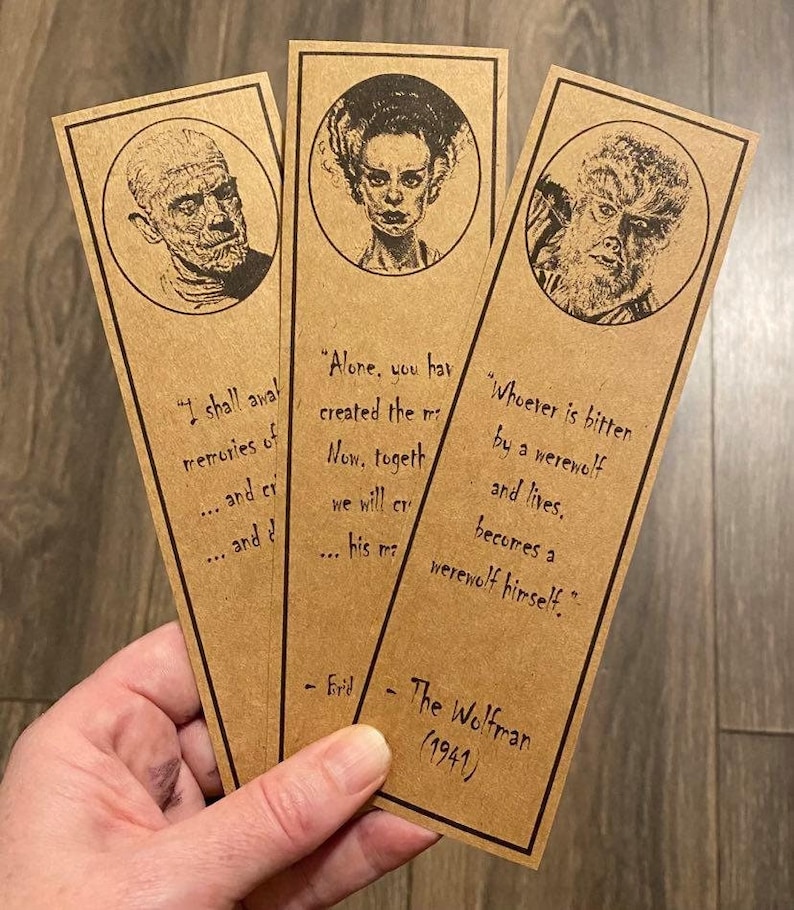 "I shall awa
memories of
... and cr
... and d
"Alone, you hav
created the m
Now, togeth
we will cr
... his ma
- Brid
"Whoever is bitten
by a werewolf
and lives,
becomes a
werewolf himself."
- The Wolfman
(1941)